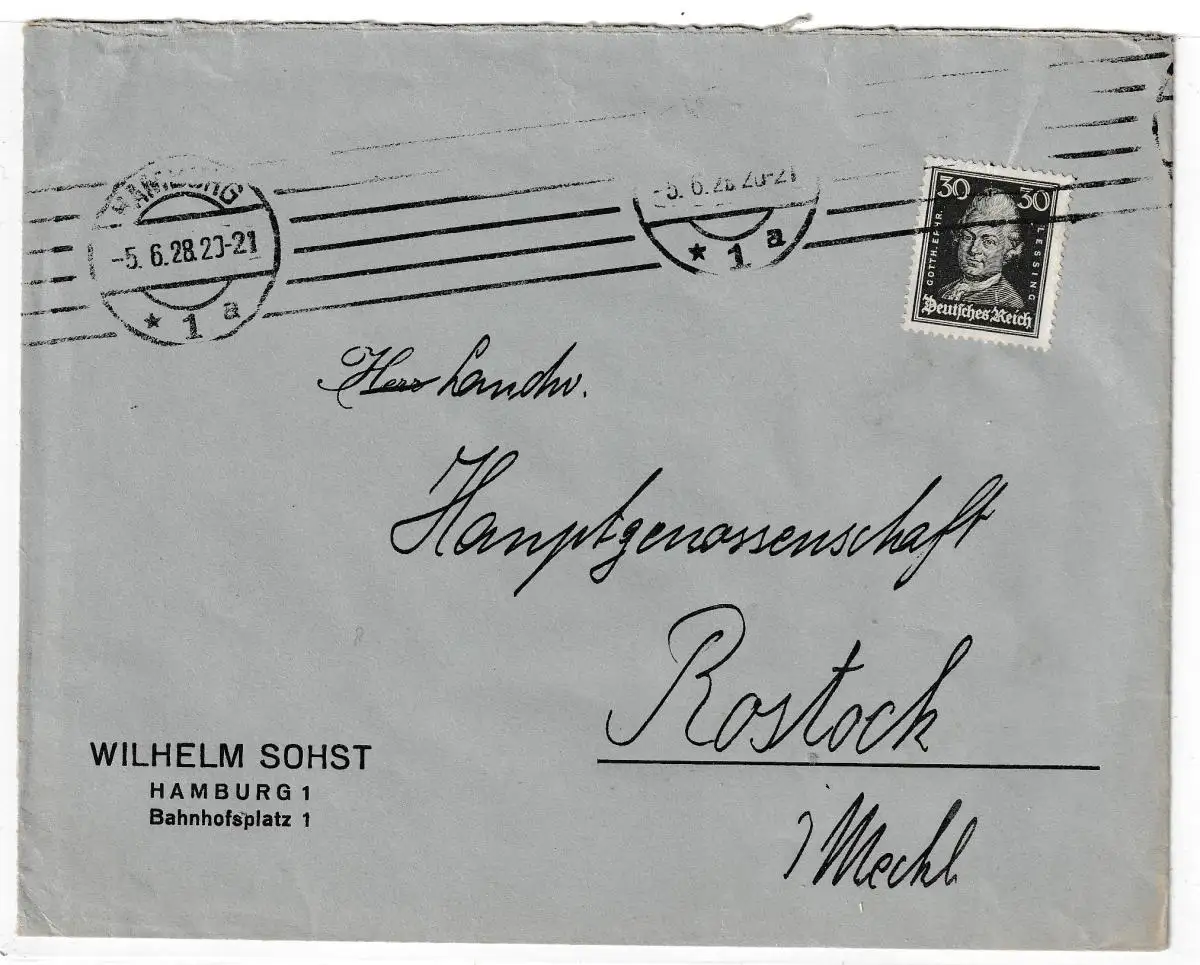 HAMBURG
-5. 6.28.20-21
* 1 a
-5. 6.28 20-21
* 1 a
30 30
GOTTH. EPHR. LESSING
Deutsches Reich
Herr Landw.
Hauptgenossenschaft
Rostock
i/Meckl
WILHELM SOHST
HAMBURG 1
Bahnhofsplatz 1